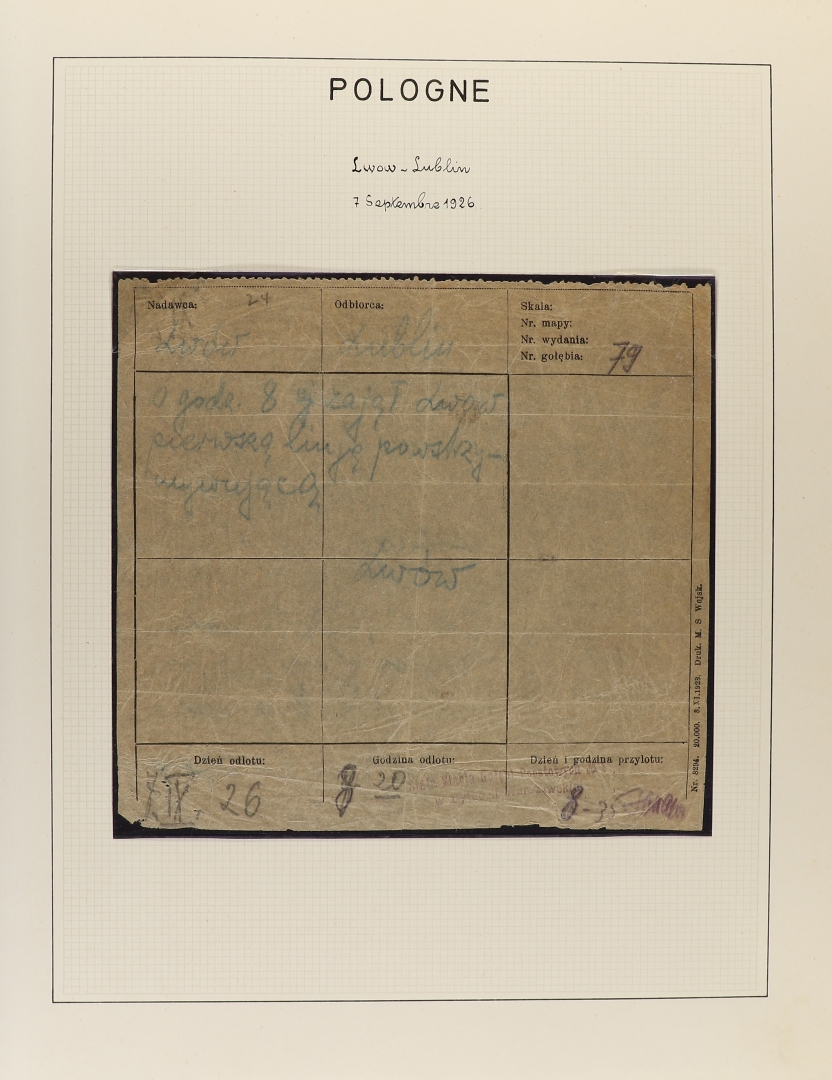 POLOGNE
Lwow - Lublin
7 Septembre 1926
Nadawca: 24
Odbiorca:
Skala:
Nr. mapy:
Nr. wydania:
Nr. gołębia: 79
Lwów
Lublin
O godz. 8 ej zajął Lwów
pierwszą linję powstrzy-
mywującą
Lwów
Nr. 8294. 20.000. 8.XI.1923. Druk. M. S Wojsk.
Dzień odlotu:
Godzina odlotu:
Dzień i godzina przylotu:
IX 26
8 20
8 - 35